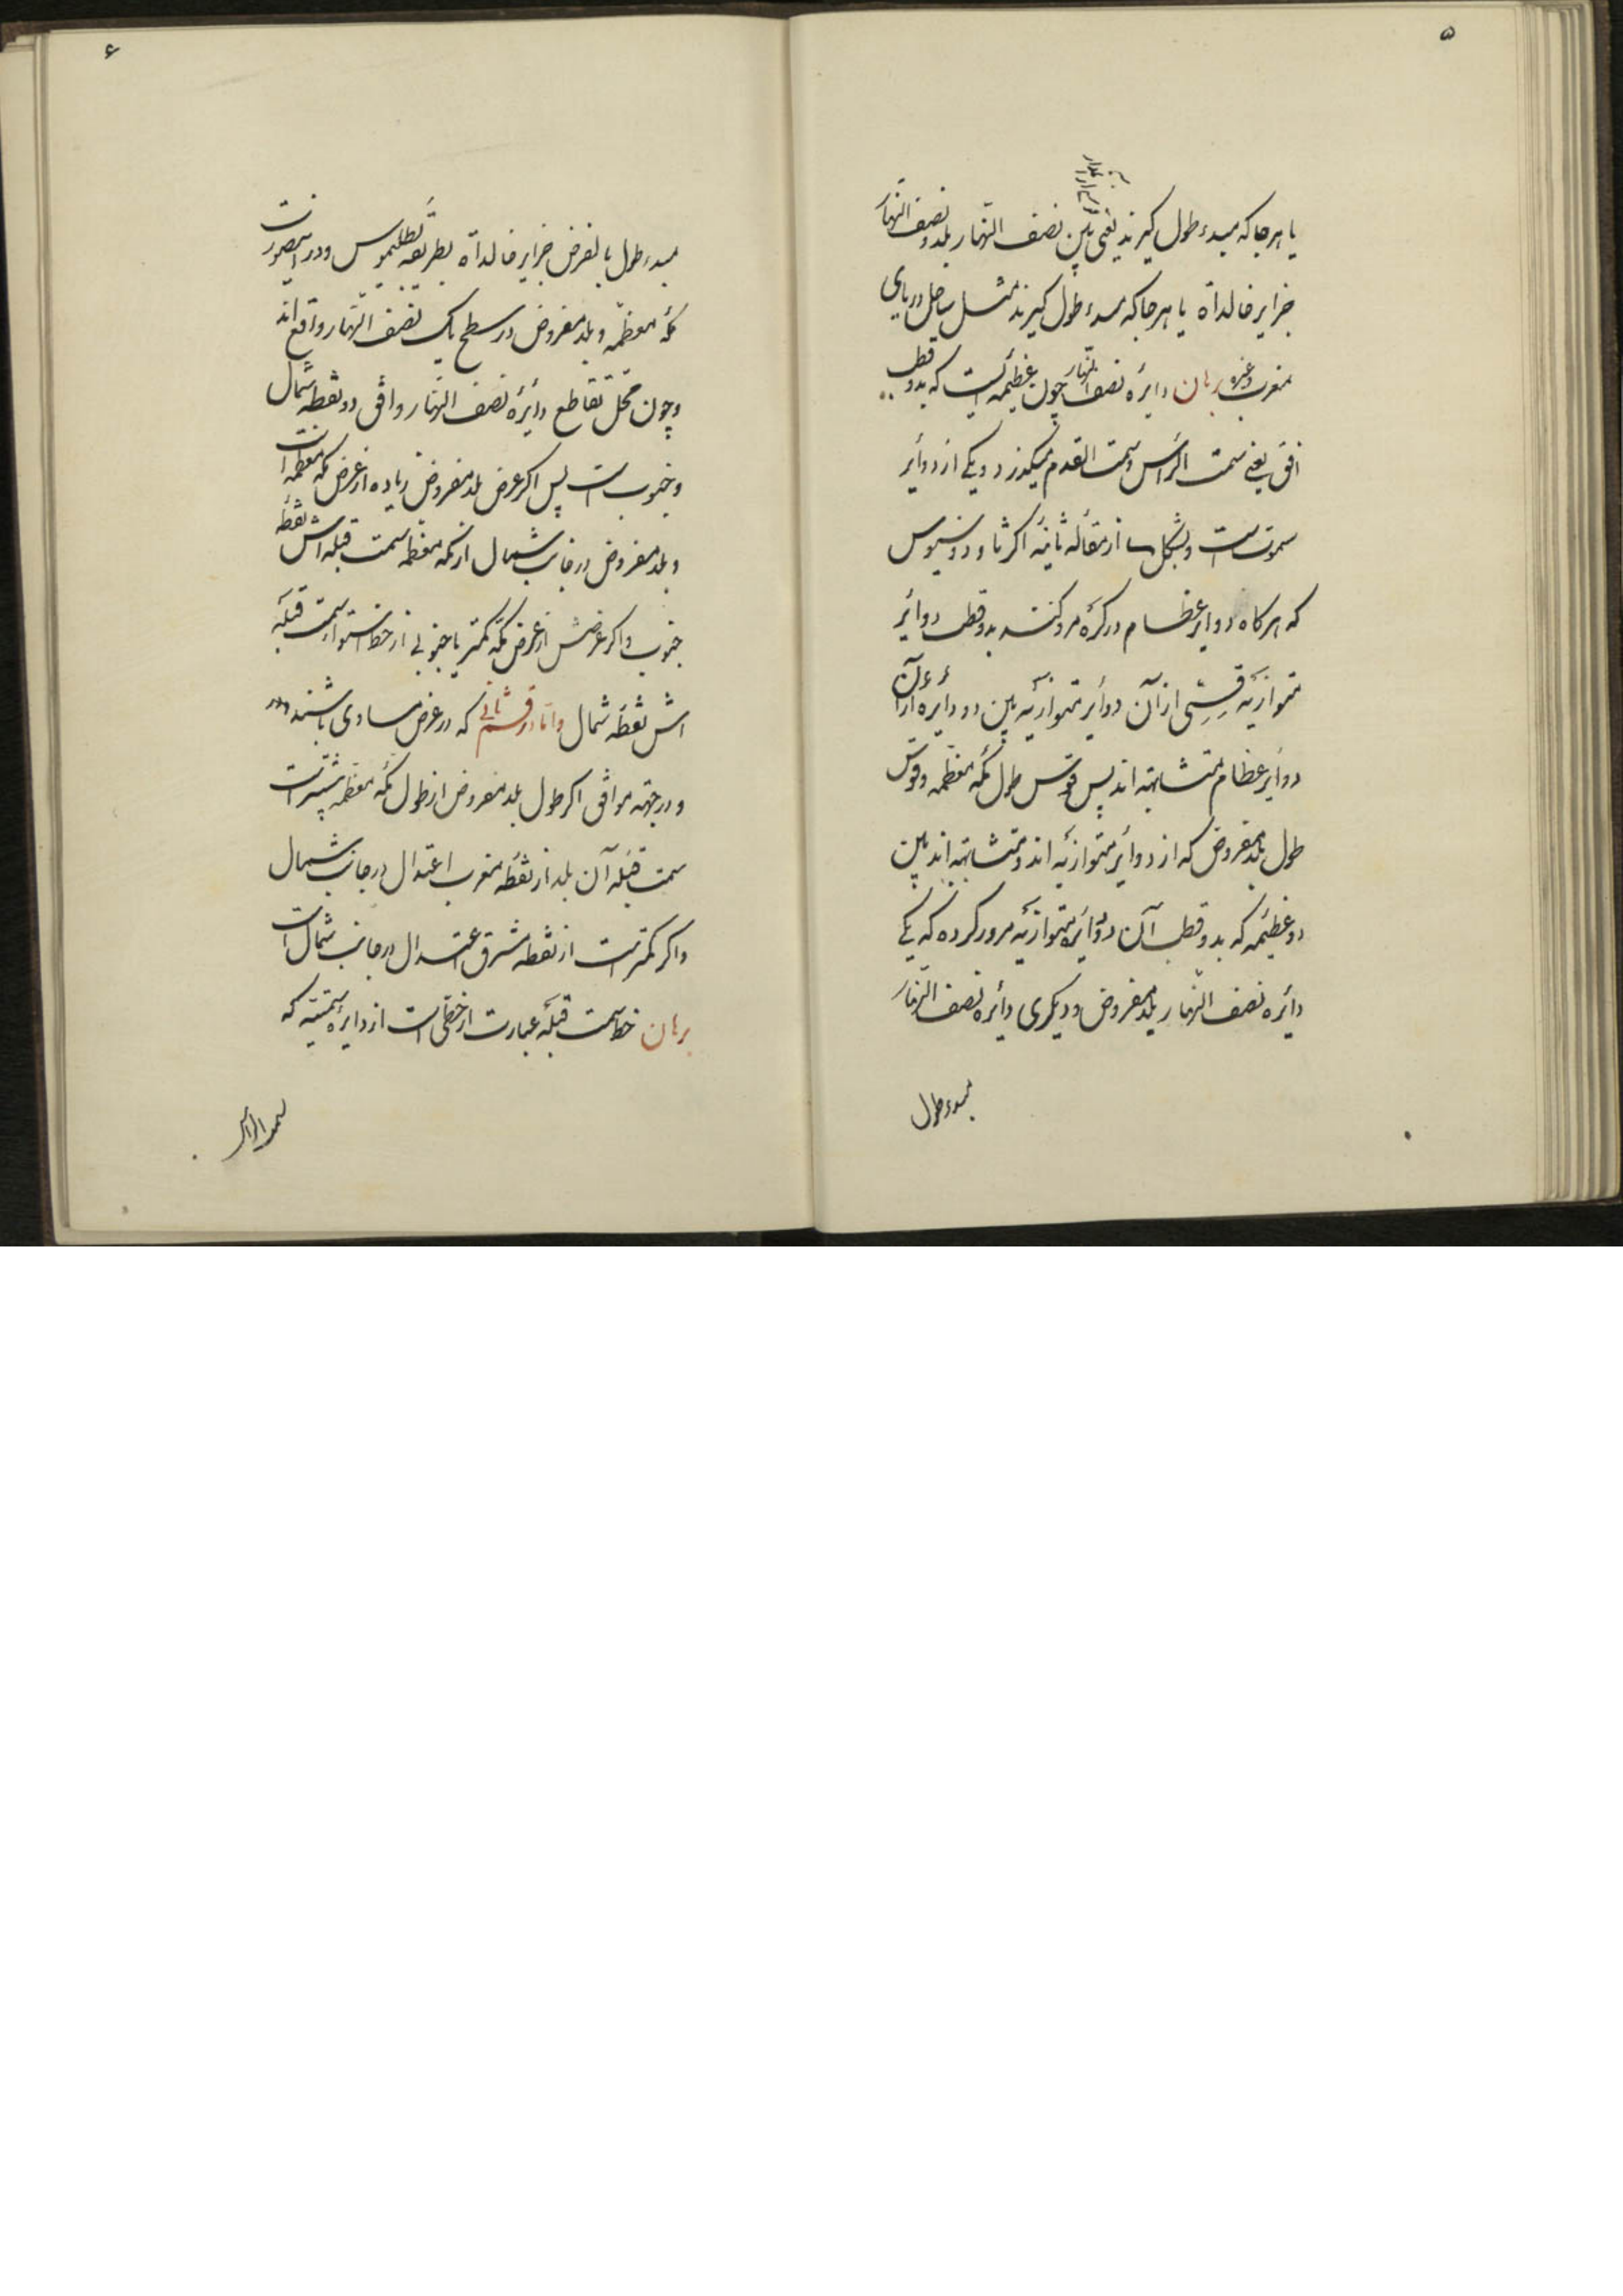 ۵
یا هرجا که مبدء طول کیرند یعنی بین نصف النّهار بلد و نصف النّهار
جزایر خالداة یا هرجا که مبدء طول کیرند مثل ساحل دریای
مغرب و غیره برهان دایرهٔ نصف النّهار چون عظیمه ایست که بدو قطب
افق یعنی سمت الرأس و سمت القدم میکذرد و یکی از دوائر
سموتست و بشکل از مقالهٔ ثانیه اکر ثاوذوسیوس
که هرکاه دوایر عظام در کره مرور کنند بدو قطب دوائر
متوازیه قسی از آن دوائر متوازیه بین دو دایره از آن
دوایر عظام متشابهه اند پس قوس طول مکه معظمه و قوس
طول بلد مفروض که از دوائر متوازیه اند و متشابهه اند بین
دو عظیمه که بدو قطب آن دوایر متوازیه مرور کرده که یکی
دائره نصف النّهار بلد مفروض و دیکری دائره نصف النّهار
مبدء طول
۶
مبدء طول بالفرض جزایر خالداة بطریقه بطلمیوس و در اینصورت
مکه معظمه و بلد مفروض در سطح یک نصف النّهار واقع اند
و چون محل تقاطع دائرهٔ نصف النّهار و افق دو نقطه شمال
و جنوب است پس اکر عرض بلد مفروض زیاده از عرض مکه معظمه است
و بلد مفروض در جانب شمال از مکه معظمه سمت قبله اش نقطه
جنوب و اکر عرضش از عرض مکه کمتر یا جنوبی از خط استوا سمت قبله
اش نقطه شمال و امّا در قسم ثانی که در عرض مساوی باشند
و در جهة موافق اکر طول بلد مفروض از طول مکه معظمه بیشتر است
سمت قبله آن بلد از نقطه مغرب اعتدال در جانب شمال
و اکر کمتر است از نقطه مشرق اعتدال در جانب شمال است
برهان خط سمت قبله عبارت از خطی است از دایرهٔ سمتیه که
بسمت الرأس